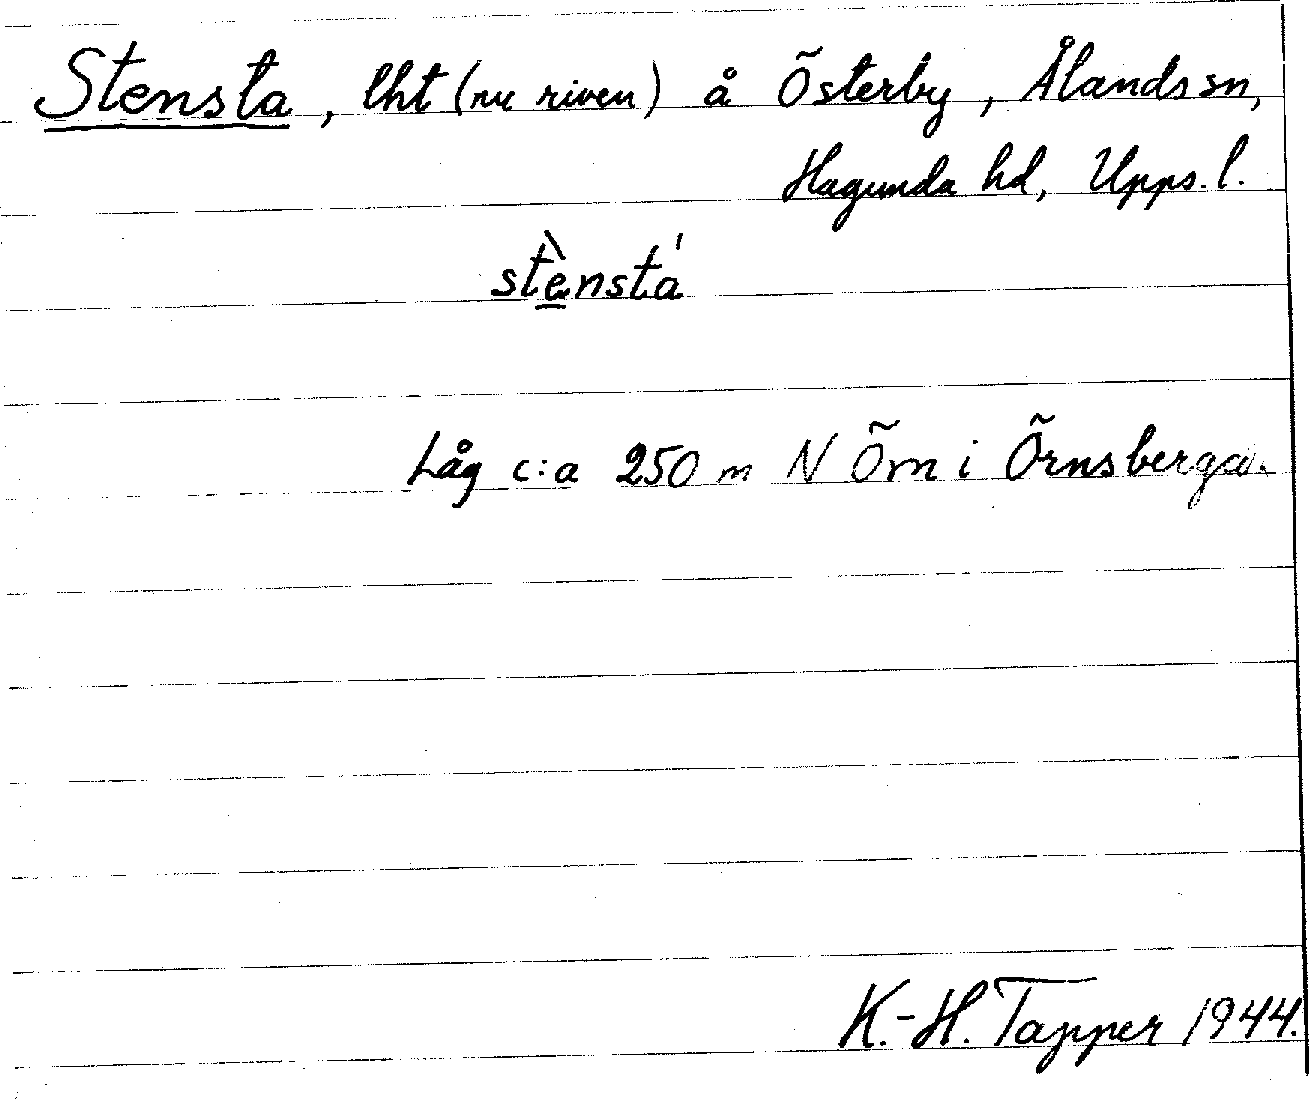 Stensta, lht (nu riven) å Österby, Ålands sn,
Hagunda hd, Upps. l.
stè̲nsta̍
Låg c:a 250 m N Örn i Örnsberga.
K.-H. Tapper 1944.